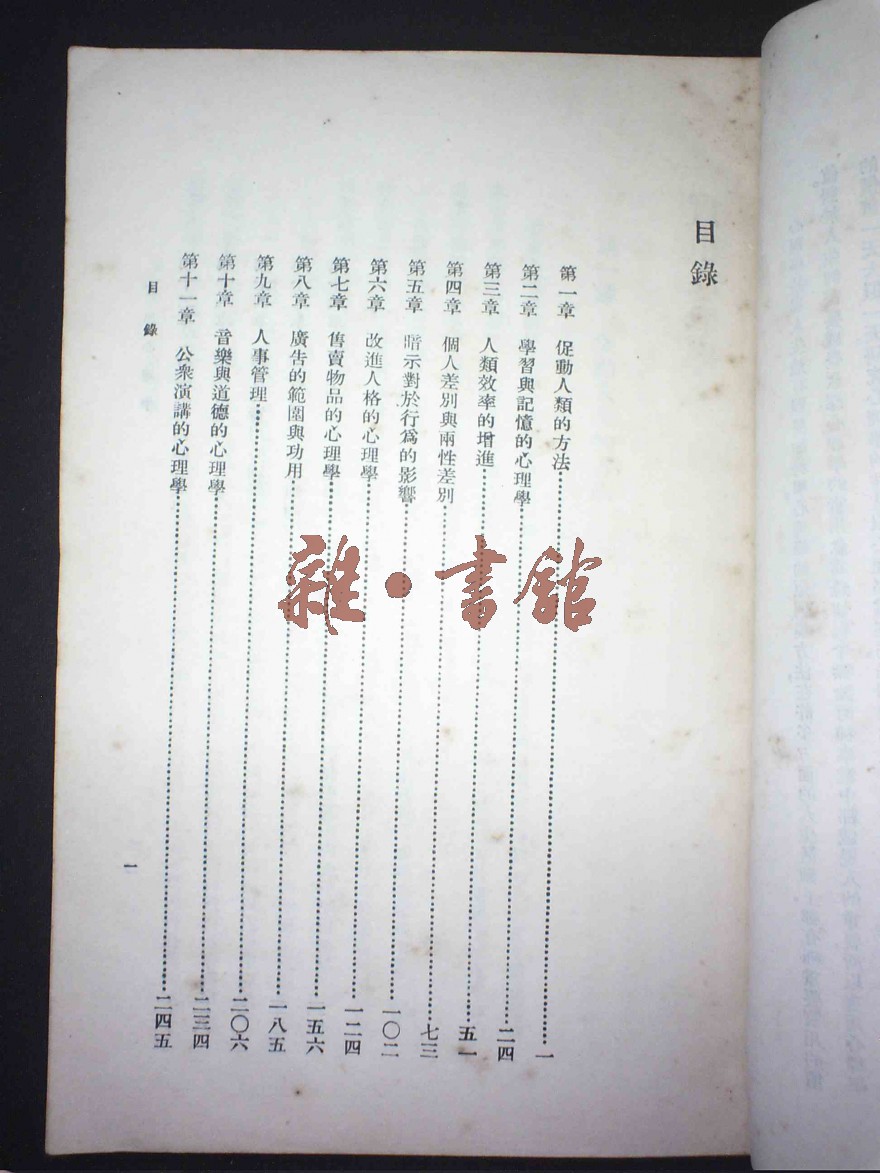 目錄
第一章 促動人類的方法……一
第二章 學習與記憶的心理學……二四
第三章 人類效率的增進……五一
第四章 個人差別與兩性差別……七三
第五章 暗示對於行爲的影響……一〇二
第六章 改進人格的心理學……一二四
第七章 售賣物品的心理學……一五六
第八章 廣告的範圍與功用……一八五
第九章 人事管理……二〇六
第十章 音樂與道德的心理學……二三四
第十一章 公衆演講的心理學……二四五
目錄
一
雜·書館